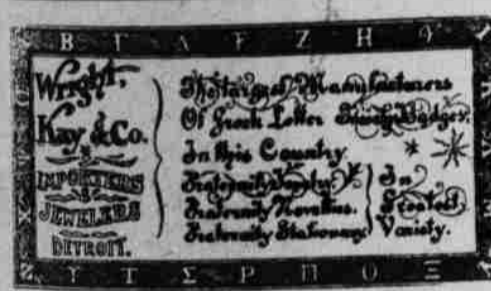 Β Γ Δ Ε Ζ Η
Wright,
Kay & Co.
IMPORTERS
&
JEWELERS
DETROIT.
The Largest Manufacturers
Of Greek Letter Society Badges,
In this Country.
Fraternity Jewelry.
Fraternity Novelties.
Fraternity Stationery
In
Greatest
Variety.
Υ Τ Σ Ρ Π Ο Ξ